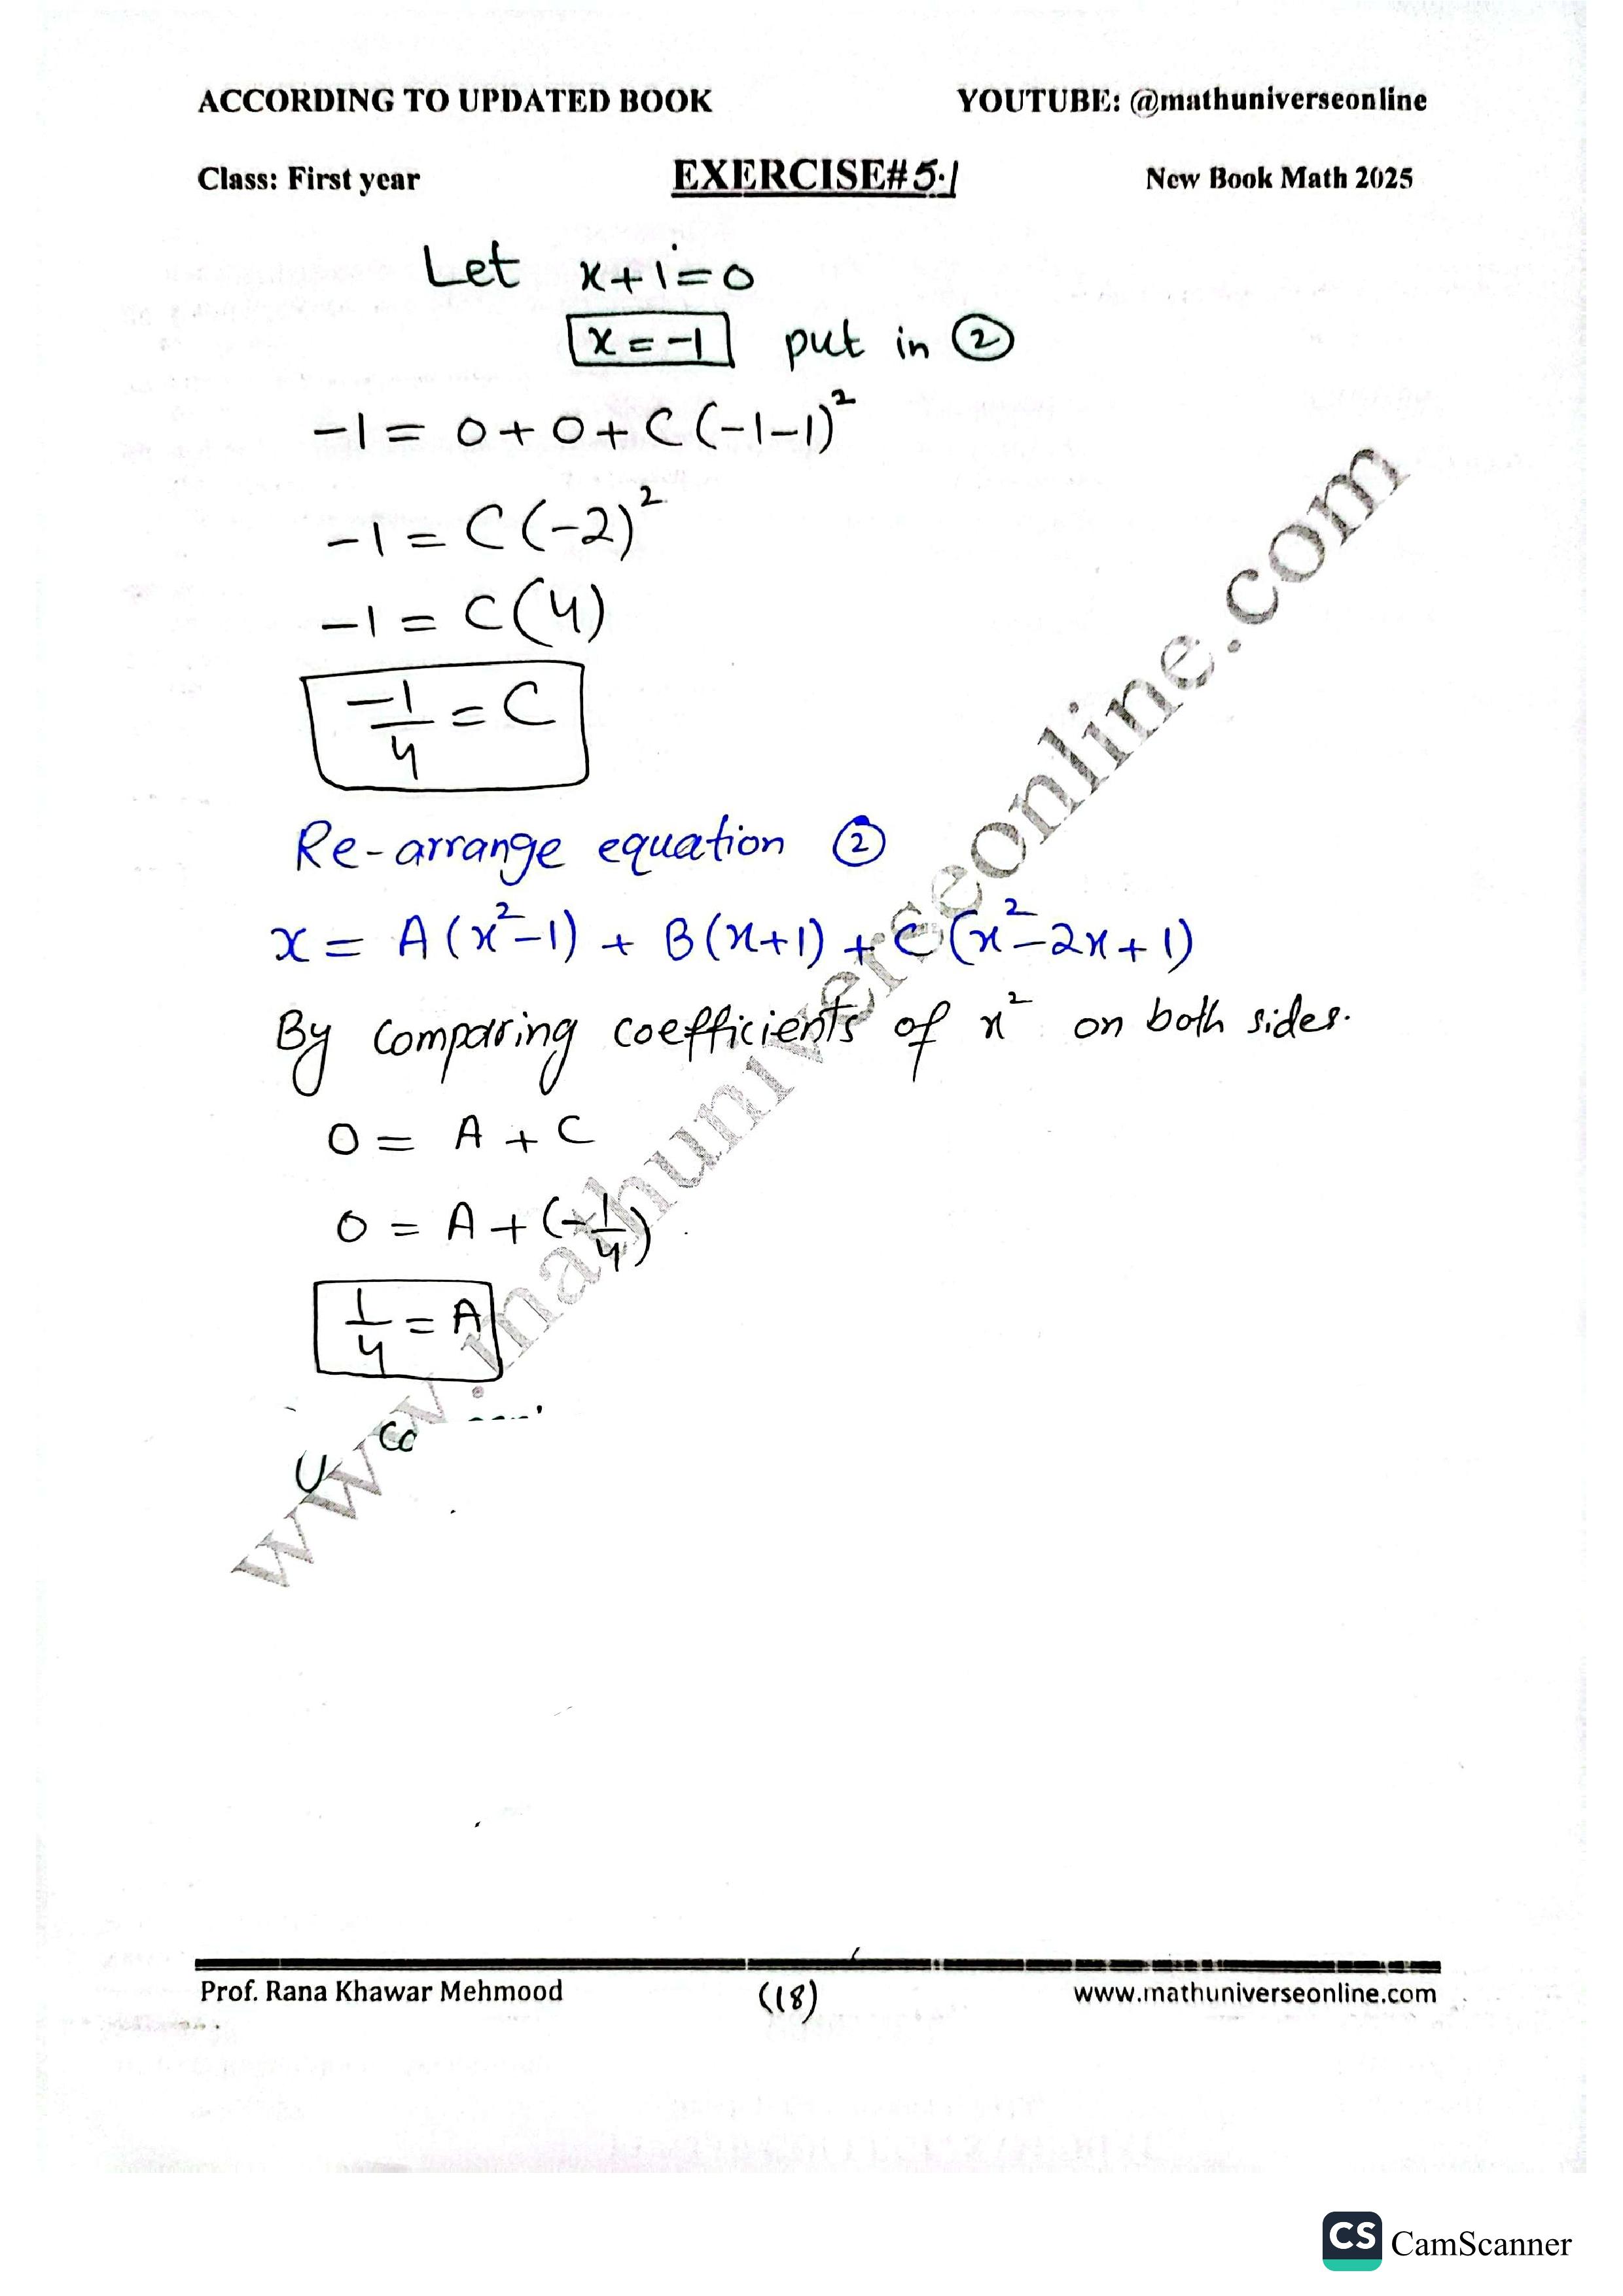 ACCORDING TO UPDATED BOOK YOUTUBE: @mathuniverseonline
Class: First year EXERCISE#5.1 New Book Math 2025
Let x+1=0
x=-1 put in ②
-1 = 0+0+C(-1-1)²
-1 = C(-2)²
-1 = C(4)
-1/4 = C
Re-arrange equation ②
x = A(x²-1) + B(x+1) + C(x²-2x+1)
By comparing coefficients of x² on both sides.
0 = A + C
0 = A+(-1/4)
1/4 = A
www.mathuniverseonline.com
Prof. Rana Khawar Mehmood (18) www.mathuniverseonline.com
CS CamScanner